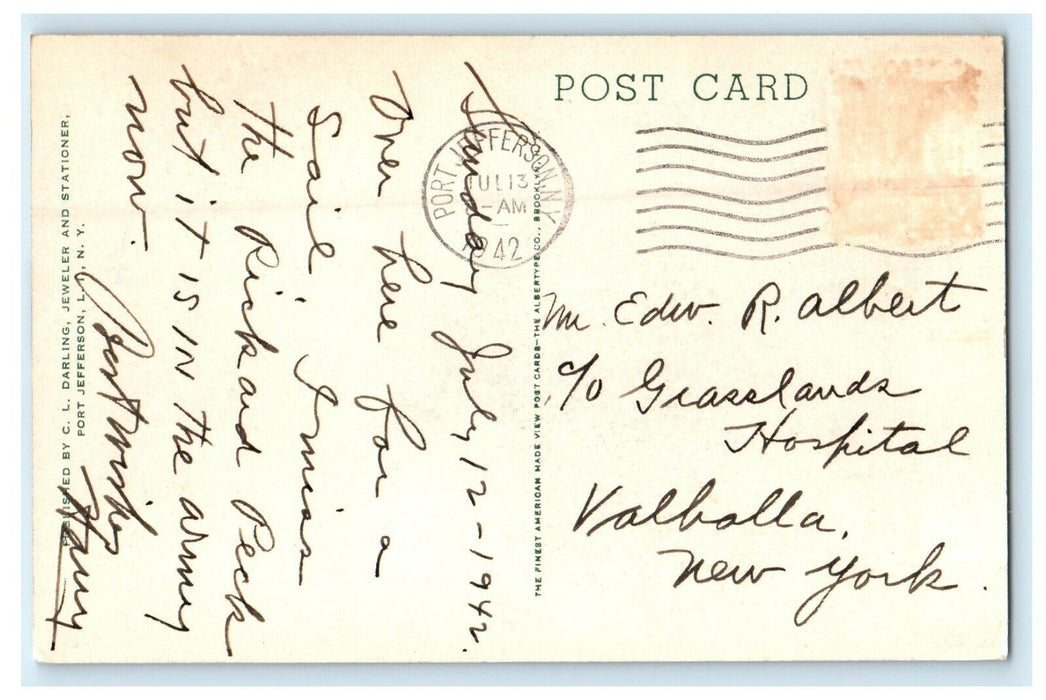 POST CARD
PORT JEFFERSON N.Y.
JUL 13
-AM
1942
Sunday July 12-1942.
Over here for a
Sail I miss
the Rick and Peck
but it is in the army
now.
Best Wishes
Mr. Edw. R. Albert
c/o Grasslands
Hospital
Valhalla,
New York.
THE FINEST AMERICAN MADE VIEW POST CARDS—THE ALBERTYPE CO., BROOKLYN
PUBLISHED BY C. L. DARLING, JEWELER AND STATIONER,
PORT JEFFERSON, L. I., N. Y.